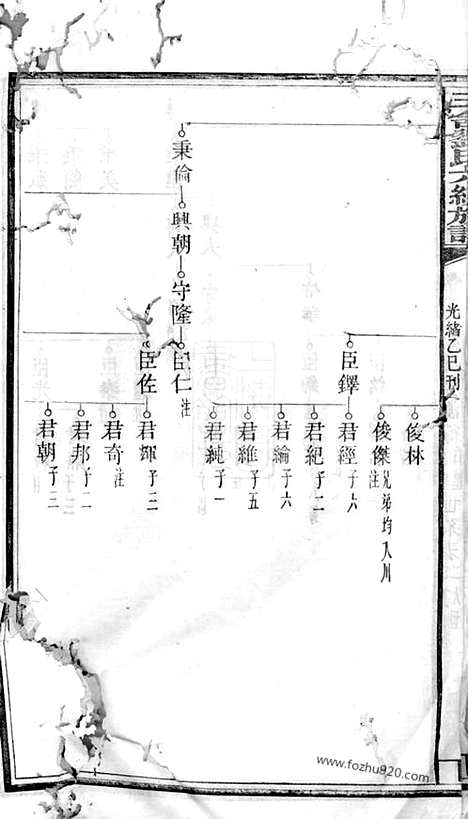 六
族
光緒乙巳刊
俊林
俊傑 註 兄弟均入川
臣鐸
君經 子六
君紀 子二
君綸 子六
君維 子五
君純 子一
秉倫
興朝
守隆
臣仁 註
臣佐
君輝 子三
君奇 註
君邦 子二
君朝 子三
www.fozhu920.com